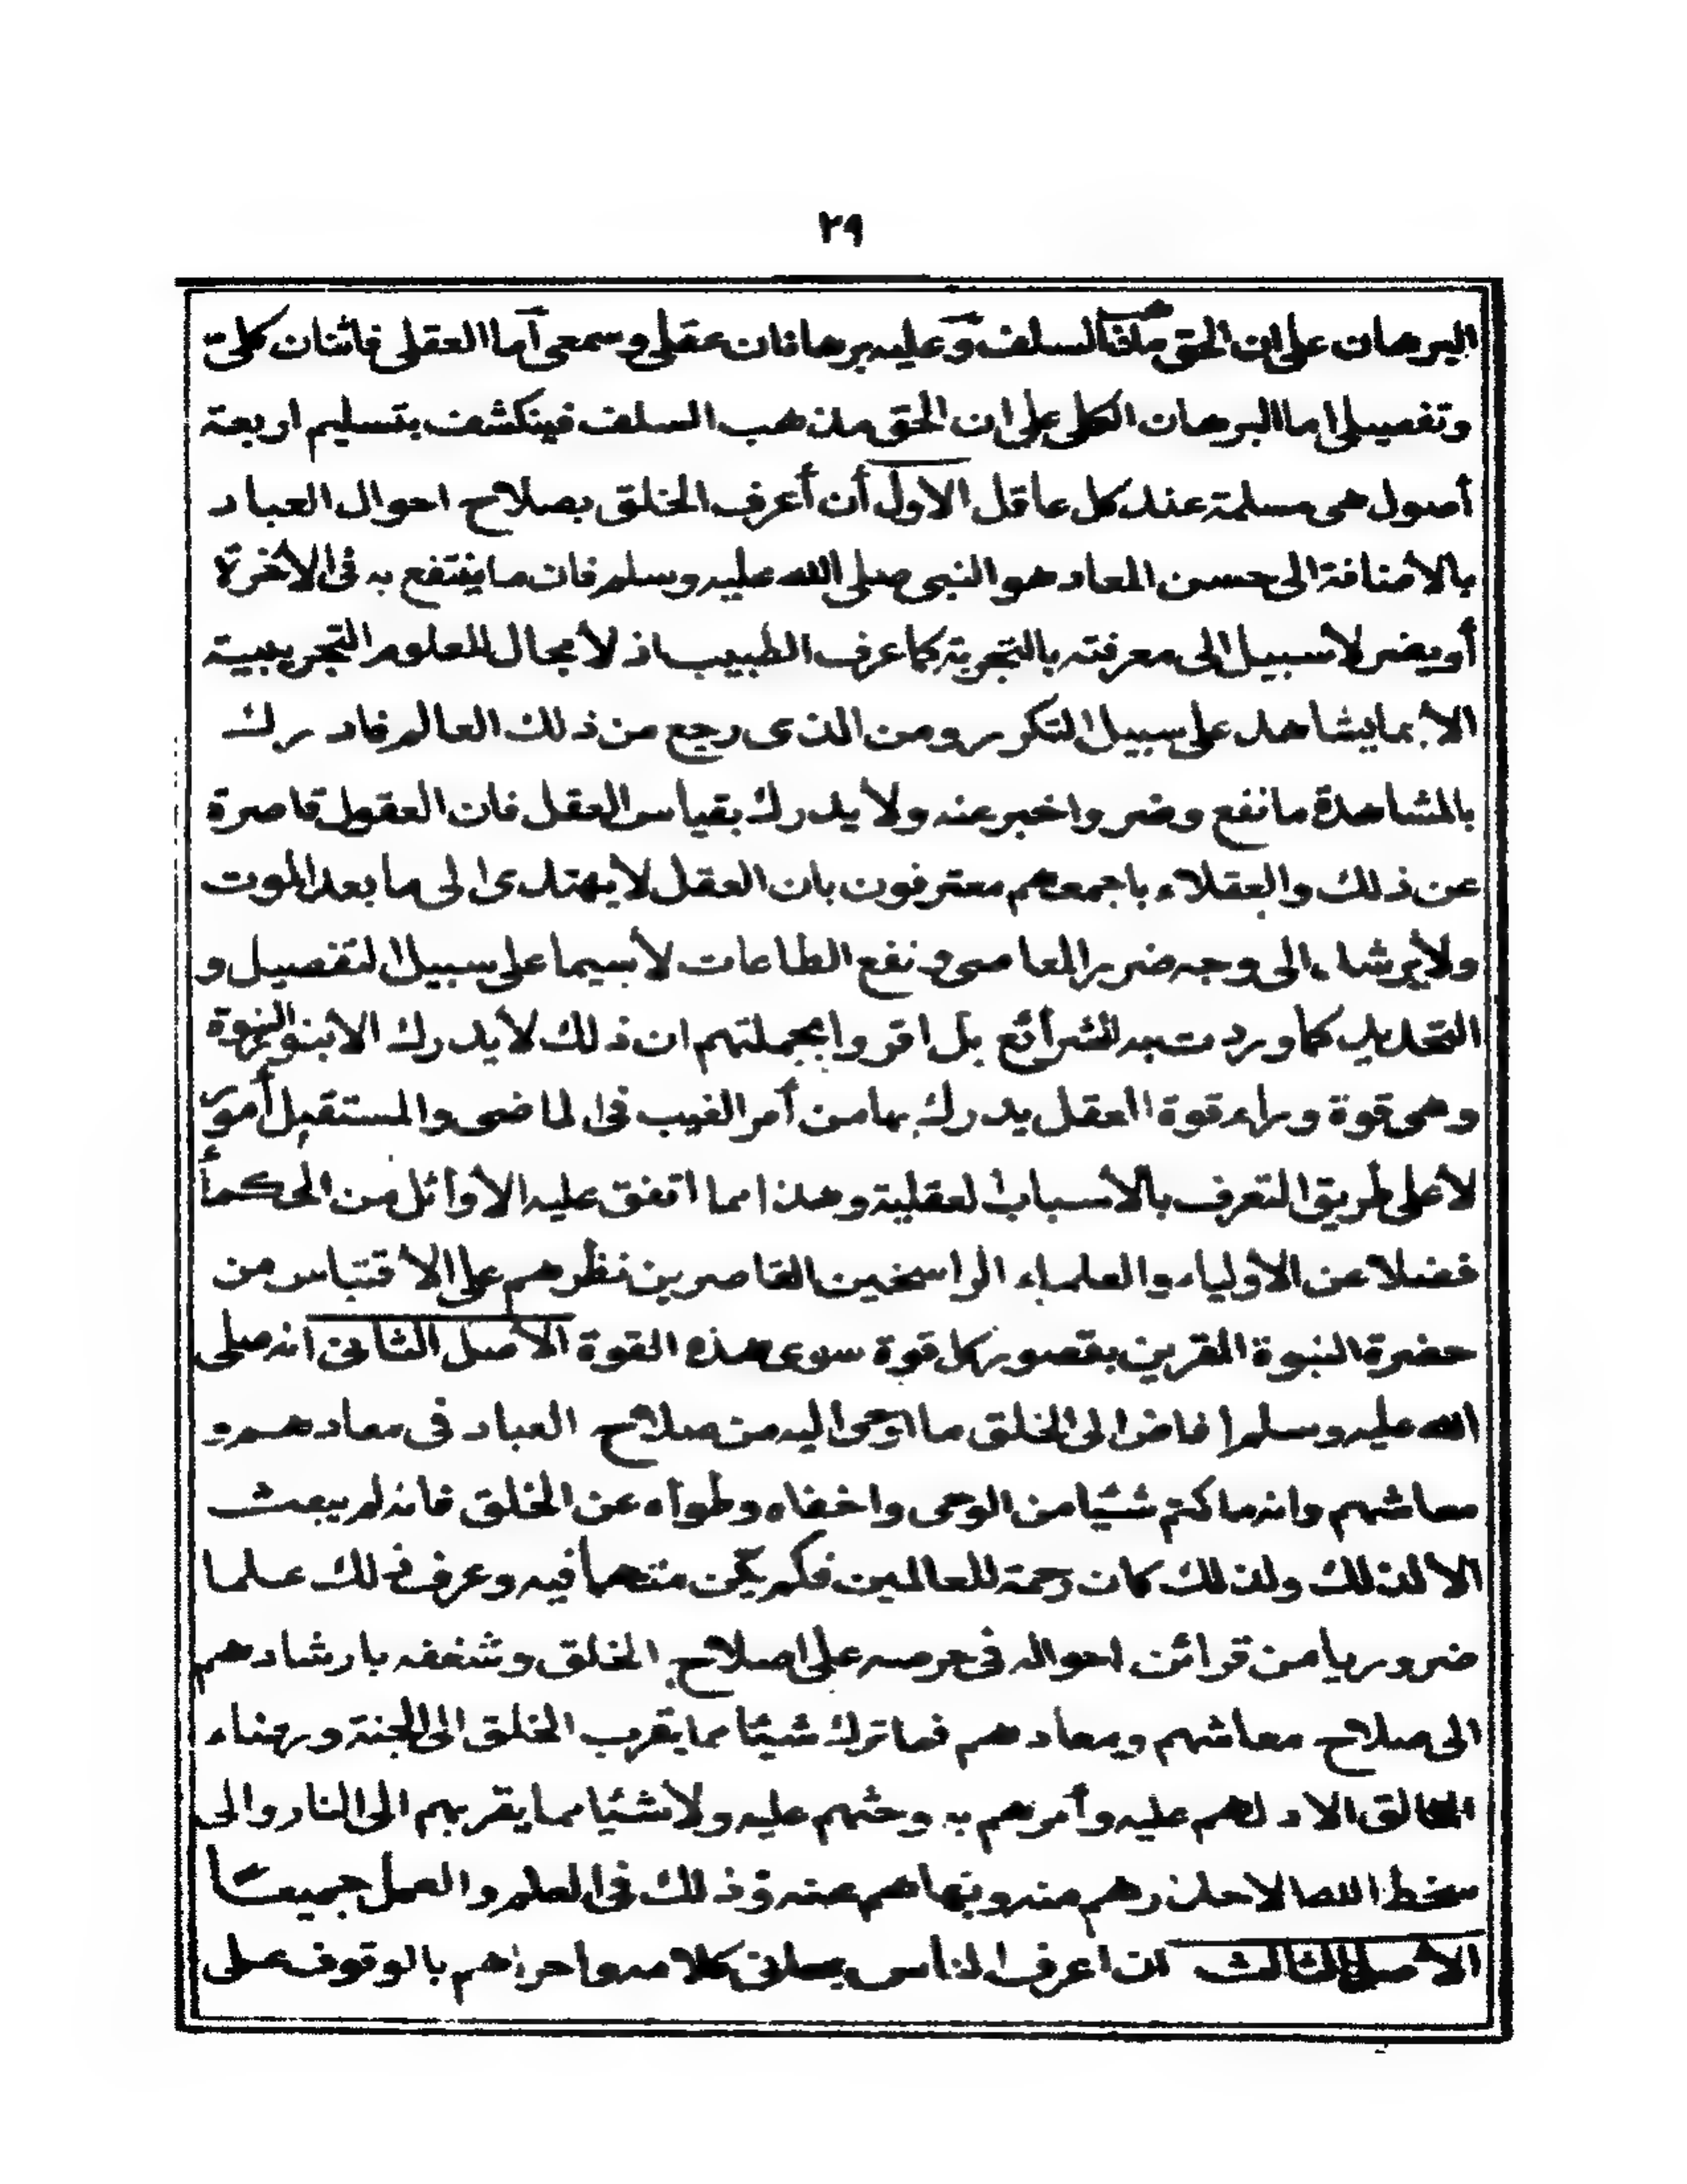 ٢٩
البرهان على ان الحق مذهب السلف وعليه برهانان عقلى وسمعى أما العقلى فاثنان كلى
وتفصيلى اما البرهان الكلى على ان الحق مذهب السلف فينكشف بتسليم اربعة
أصول هى مسلمة عند كل عاقل الاول أن أعرف الخلق بصلاح احوال العباد
بالاضافة الى حسن المعاد هو النبى صلى الله عليه وسلم فان ما ينتفع به فى الأخرة
أو يضر لا سبيل الى معرفته بالتجربة كما عرف الطبيب اذ لا مجال للعلوم التجريبية
الا بما يشاهد على سبيل التكرر ومن الذى رجع من ذلك العالم فادرك
بالمشاهدة ما نفع وضر واخبر عنه ولا يدرك بقياس العقل فان العقول قاصرة
عن ذلك والعقلاء باجمعهم معترفون بان العقل لا يهتدى الى ما بعد الموت
ولا يرشد الى وجه ضرر المعاصى ونفع الطاعات لا سيما على سبيل التفصيل و
التحديد كما وردت به الشرائع بل اقروا بجملتهم ان ذلك لا يدرك الا بنور النبوة
وهى قوة وراء قوة العقل يدرك بها من أمر الغيب فى الماضى والمستقبل أمور
لا على طريق التعرف بالأسباب العقلية وهذا مما اتفق عليه الأوائل من الحكماء
فضلا عن الاولياء والعلماء الراسخين القاصرين نظرهم على الاقتباس من
حضرة النبوة المقرين بقصور كل قوة سوى هذه القوة الاصل الثانى انه صلى
الله عليه وسلم افاض الى الخلق ما اوحى اليه من صلاح العباد فى معادهم و
معاشهم وانه ما كتم شيئا من الوحى واخفاه وطواه عن الخلق فانه لم يبعث
الا لذلك ولذلك كان رحمة للعالمين فلم يكن متهما فيه وعرف ذلك علما
ضروريا من قرائن احواله فى حرصه على اصلاح الخلق وشغفه بارشادهم
الى صلاح معاشهم ومعادهم فما ترك شيئا مما يقرب الخلق الى الجنة ورضاء
الخالق الا دلهم عليه وأمرهم به وحثهم عليه ولا شيئا مما يقربهم الى النار والى
سخط الله الا حذرهم منه ونهاهم عنه وذلك فى العلم والعمل جميعا
الأصل الثالث ان اعرف الناس بمعانى كلامه واحراهم بالوقوف على